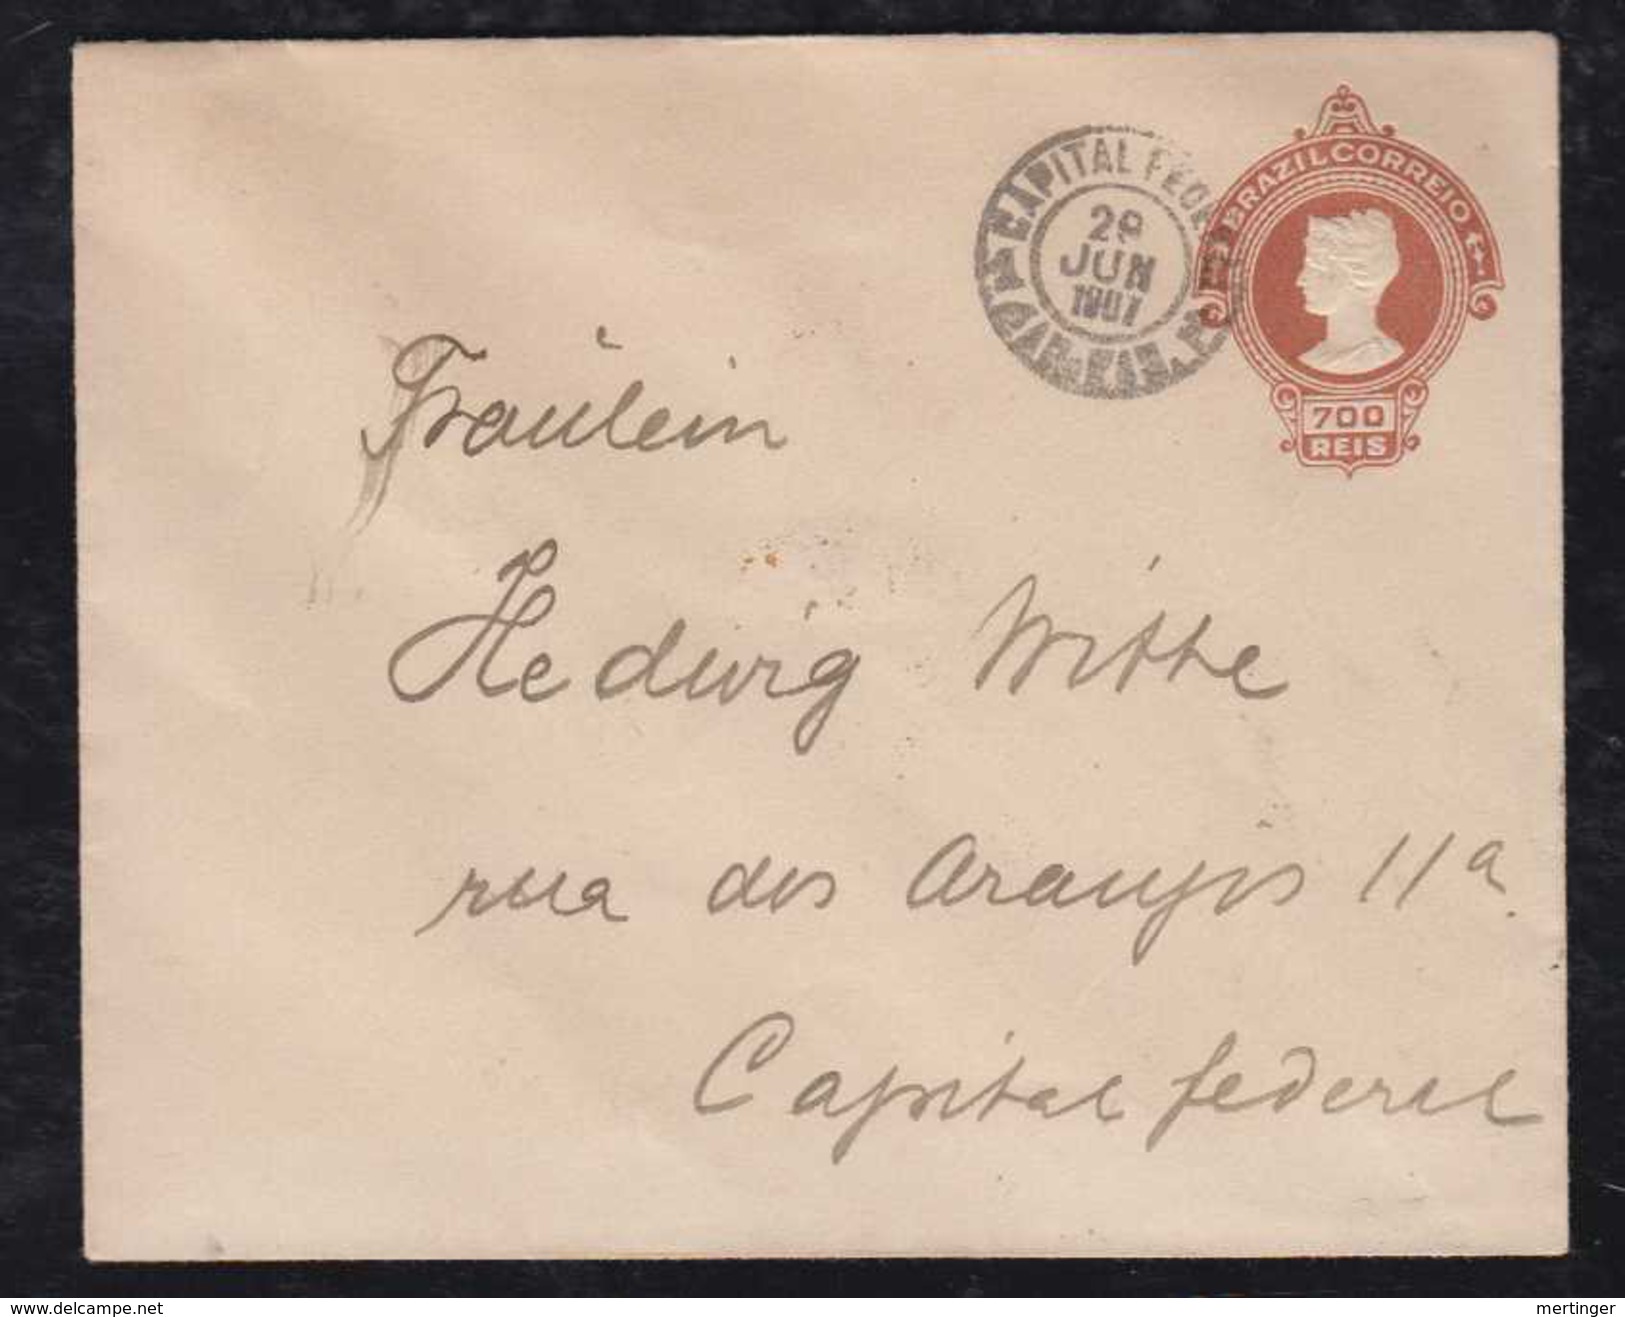 CAPITAL FEDER
29
JUN
1907
BRAZIL CORREIO
700
REIS
Fräulein
Hedwig Witte
rua dos Araujos 11a.
Capital federal
www.delcampe.net
mertinger